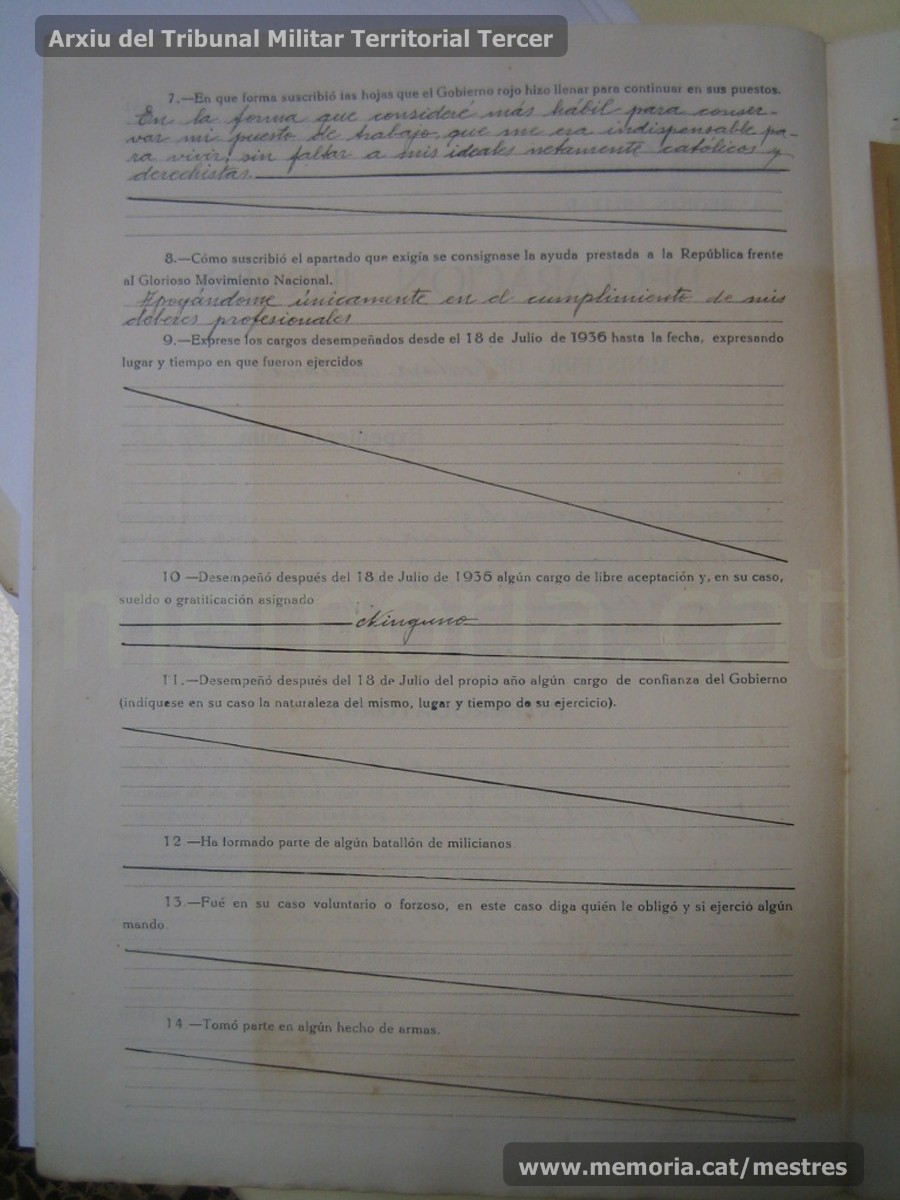 Arxiu del Tribunal Militar Territorial Tercer
7.—En que forma suscribió las hojas que el Gobierno rojo hizo llenar para continuar en sus puestos.
En la forma que consideré más hábil para conser-
var mi puesto de trabajo, que me era indispensable pa-
ra vivir, sin faltar a mis ideales netamente católicos y
derechistas.
8.—Cómo suscribió el apartado que exigía se consignase la ayuda prestada a la República frente
al Glorioso Movimiento Nacional.
Apoyándome únicamente en el cumplimiento de mis
deberes profesionales
9.—Exprese los cargos desempeñados desde el 18 de Julio de 1936 hasta la fecha, expresando
lugar y tiempo en que fueron ejercidos
10 —Desempeñó después del 18 de Julio de 1936 algún cargo de libre aceptación y, en su caso,
sueldo o gratificación asignado
Ninguno
memoria.cat
11.—Desempeñó después del 18 de Julio del propio año algún cargo de confianza del Gobierno
(indíquese en su caso la naturaleza del mismo, lugar y tiempo de su ejercicio).
12 —Ha formado parte de algún batallón de milicianos
13.—Fué en su caso voluntario o forzoso, en este caso diga quién le obligó y si ejerció algún
mando.
14.—Tomó parte en algún hecho de armas.
www.memoria.cat/mestres